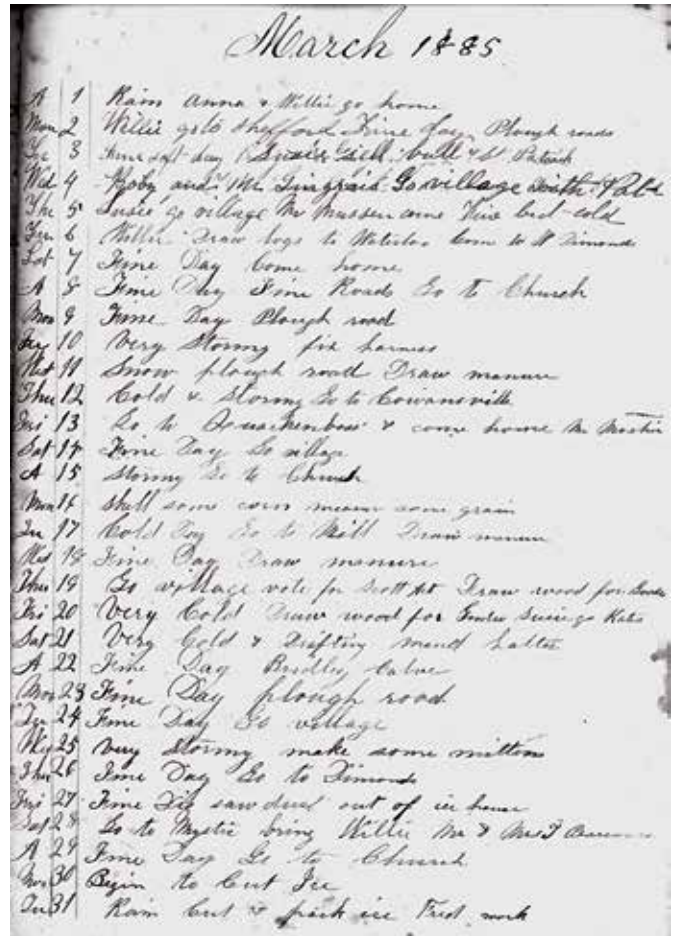 March 1885
A 1 Rain Anna & Willie go home
Mon 2 Willie go to Shefford Fine Day Plough roads
Tu 3 soft day Susie sell bull to St Patrick
Wed 4 Roby and Mr Go village with
Thu 5 Susie go village Mr Mussen came Fine but cold
Fri 6 Willie Draw logs to Waterloo Come to N Dimonds
Sat 7 Fine Day Come home
A 8 Fine Day Fine Roads Go to Church
Mon 9 Fine Day Plough road
Tu 10 Very Stormy fix harness
Wed 11 Snow plough road Draw manure
Thu 12 Cold & Stormy Go to Cowansville
Fri 13 Go to & come home Mr
Sat 14 Fine Day Go village
A 15 Stormy Go to Church
Mon 16 shell some corn some grain
Tu 17 Cold Day Go to Mill Draw manure
Wed 18 Fine Day Draw manure
Thu 19 Go village vote for Scott Act Draw wood for
Fri 20 Very Cold Draw wood for Susie go Kate
Sat 21 Very Cold & Drifting mend halter
A 22 Fine Day Brindley Calve
Mon 23 Fine Day plough road
Tu 24 Fine Day Go village
Wed 25 Very Stormy make some mittens
Thu 26 Fine Day Go to Dimonds
Fri 27 Fine Dig saw dust out of ice house
Sat 28 Go to Mystic bring Willie Mr & Mrs
A 29 Fine Day Go to Church
Mon 30 Begin to Cut Ice
Tu 31 Rain Cut & pack ice Fred work